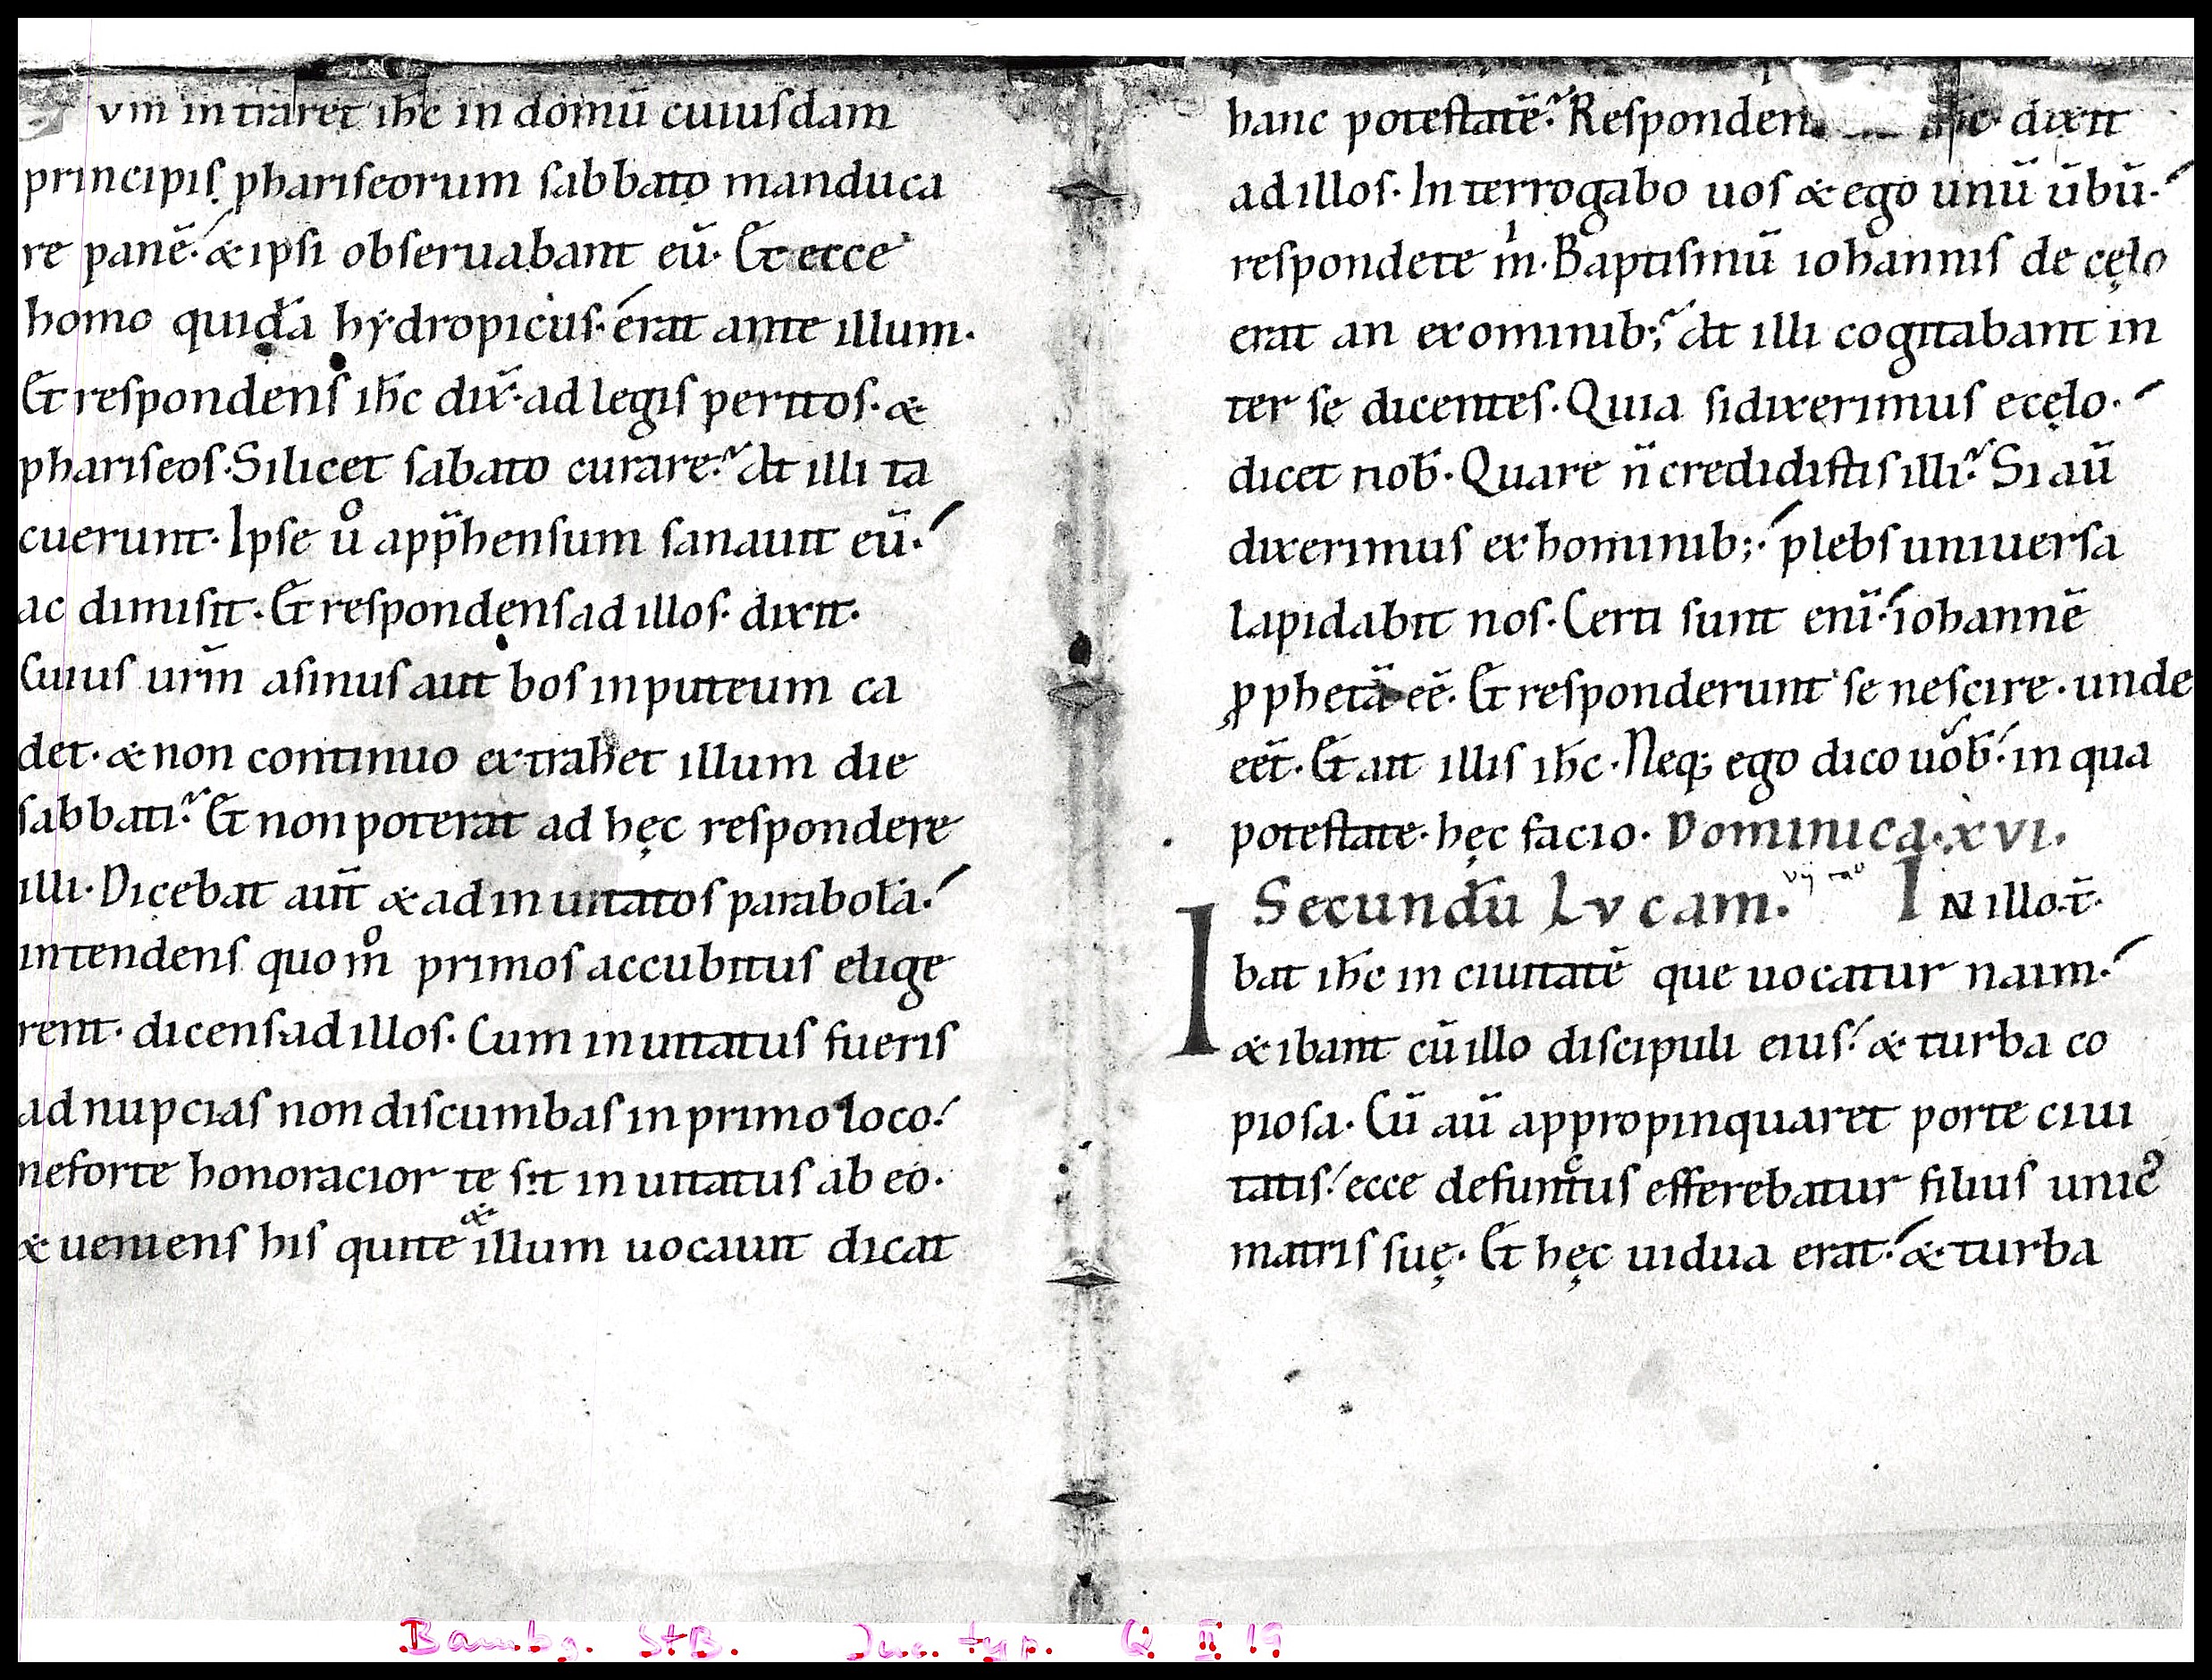 vm intraret ihc̄ in domū cuiusdam
principis phariseorum sabbato manduca
re panē. & ipsi obseruabant eū. Et ecce
homo quidā hydropicus. erat ante illum.
Et respondens ihc̄ dix̄. ad legis peritos. &
phariseos. Si licet sabato curare? At illi ta
cuerunt. Ipse uͦ app̄hensum sanauit eū.
ac dimisit. Et respondens ad illos. dixit.
Cuius ur̄m asinus aut bos in puteum ca
det. & non continuo extrahet illum die
sabbati? Et non poterat ad hęc respondere
illi. Dicebat aūt & ad inuitatos parabolā.
intendens quom̊ primos accubitus elige
rent. dicens ad illos. Cum inuitatus fueris
ad nupcias non discumbas in primo loco.
ne forte honoracior te sit inuitatus ab eo.
&
& ueniens his qui te illum uocauit dicat
hanc potestatē? Responden dixit
ad illos. Interrogabo uos & ego unū ūbū.
respondete m̍. Baptismū iohannis de cęlo
erat an ex ominib;? At illi cogitabant in
ter se dicentes. Quia si dixerimus e cęlo.
dicet nob̄. Quare n̄ credidistis illi? Si aū
dixerimus ex hominib;. plebs uniuersa
lapidabit nos. Certi sunt enī. iohannē
ꝓphetā eē. Et responderunt se nescire. unde
eēt. Et ait illis ihc̄. Neq; ego dico uob̄. in qua
potestate. hęc facio. Dominica. xvi.
Secundū Lvcam. IN illo. t̄.
Ibat ihc̄ in ciuitatē que uocatur naim.
& ibant cū illo discipuli eius. & turba co
piosa. Cū aū appropinquaret porte ciui
tatis. ecce defunctus efferebatur filius unicꝰ
matris suę. Et hęc uidua erat. & turba
Bambg. StB. Inc. typ. Q II 19